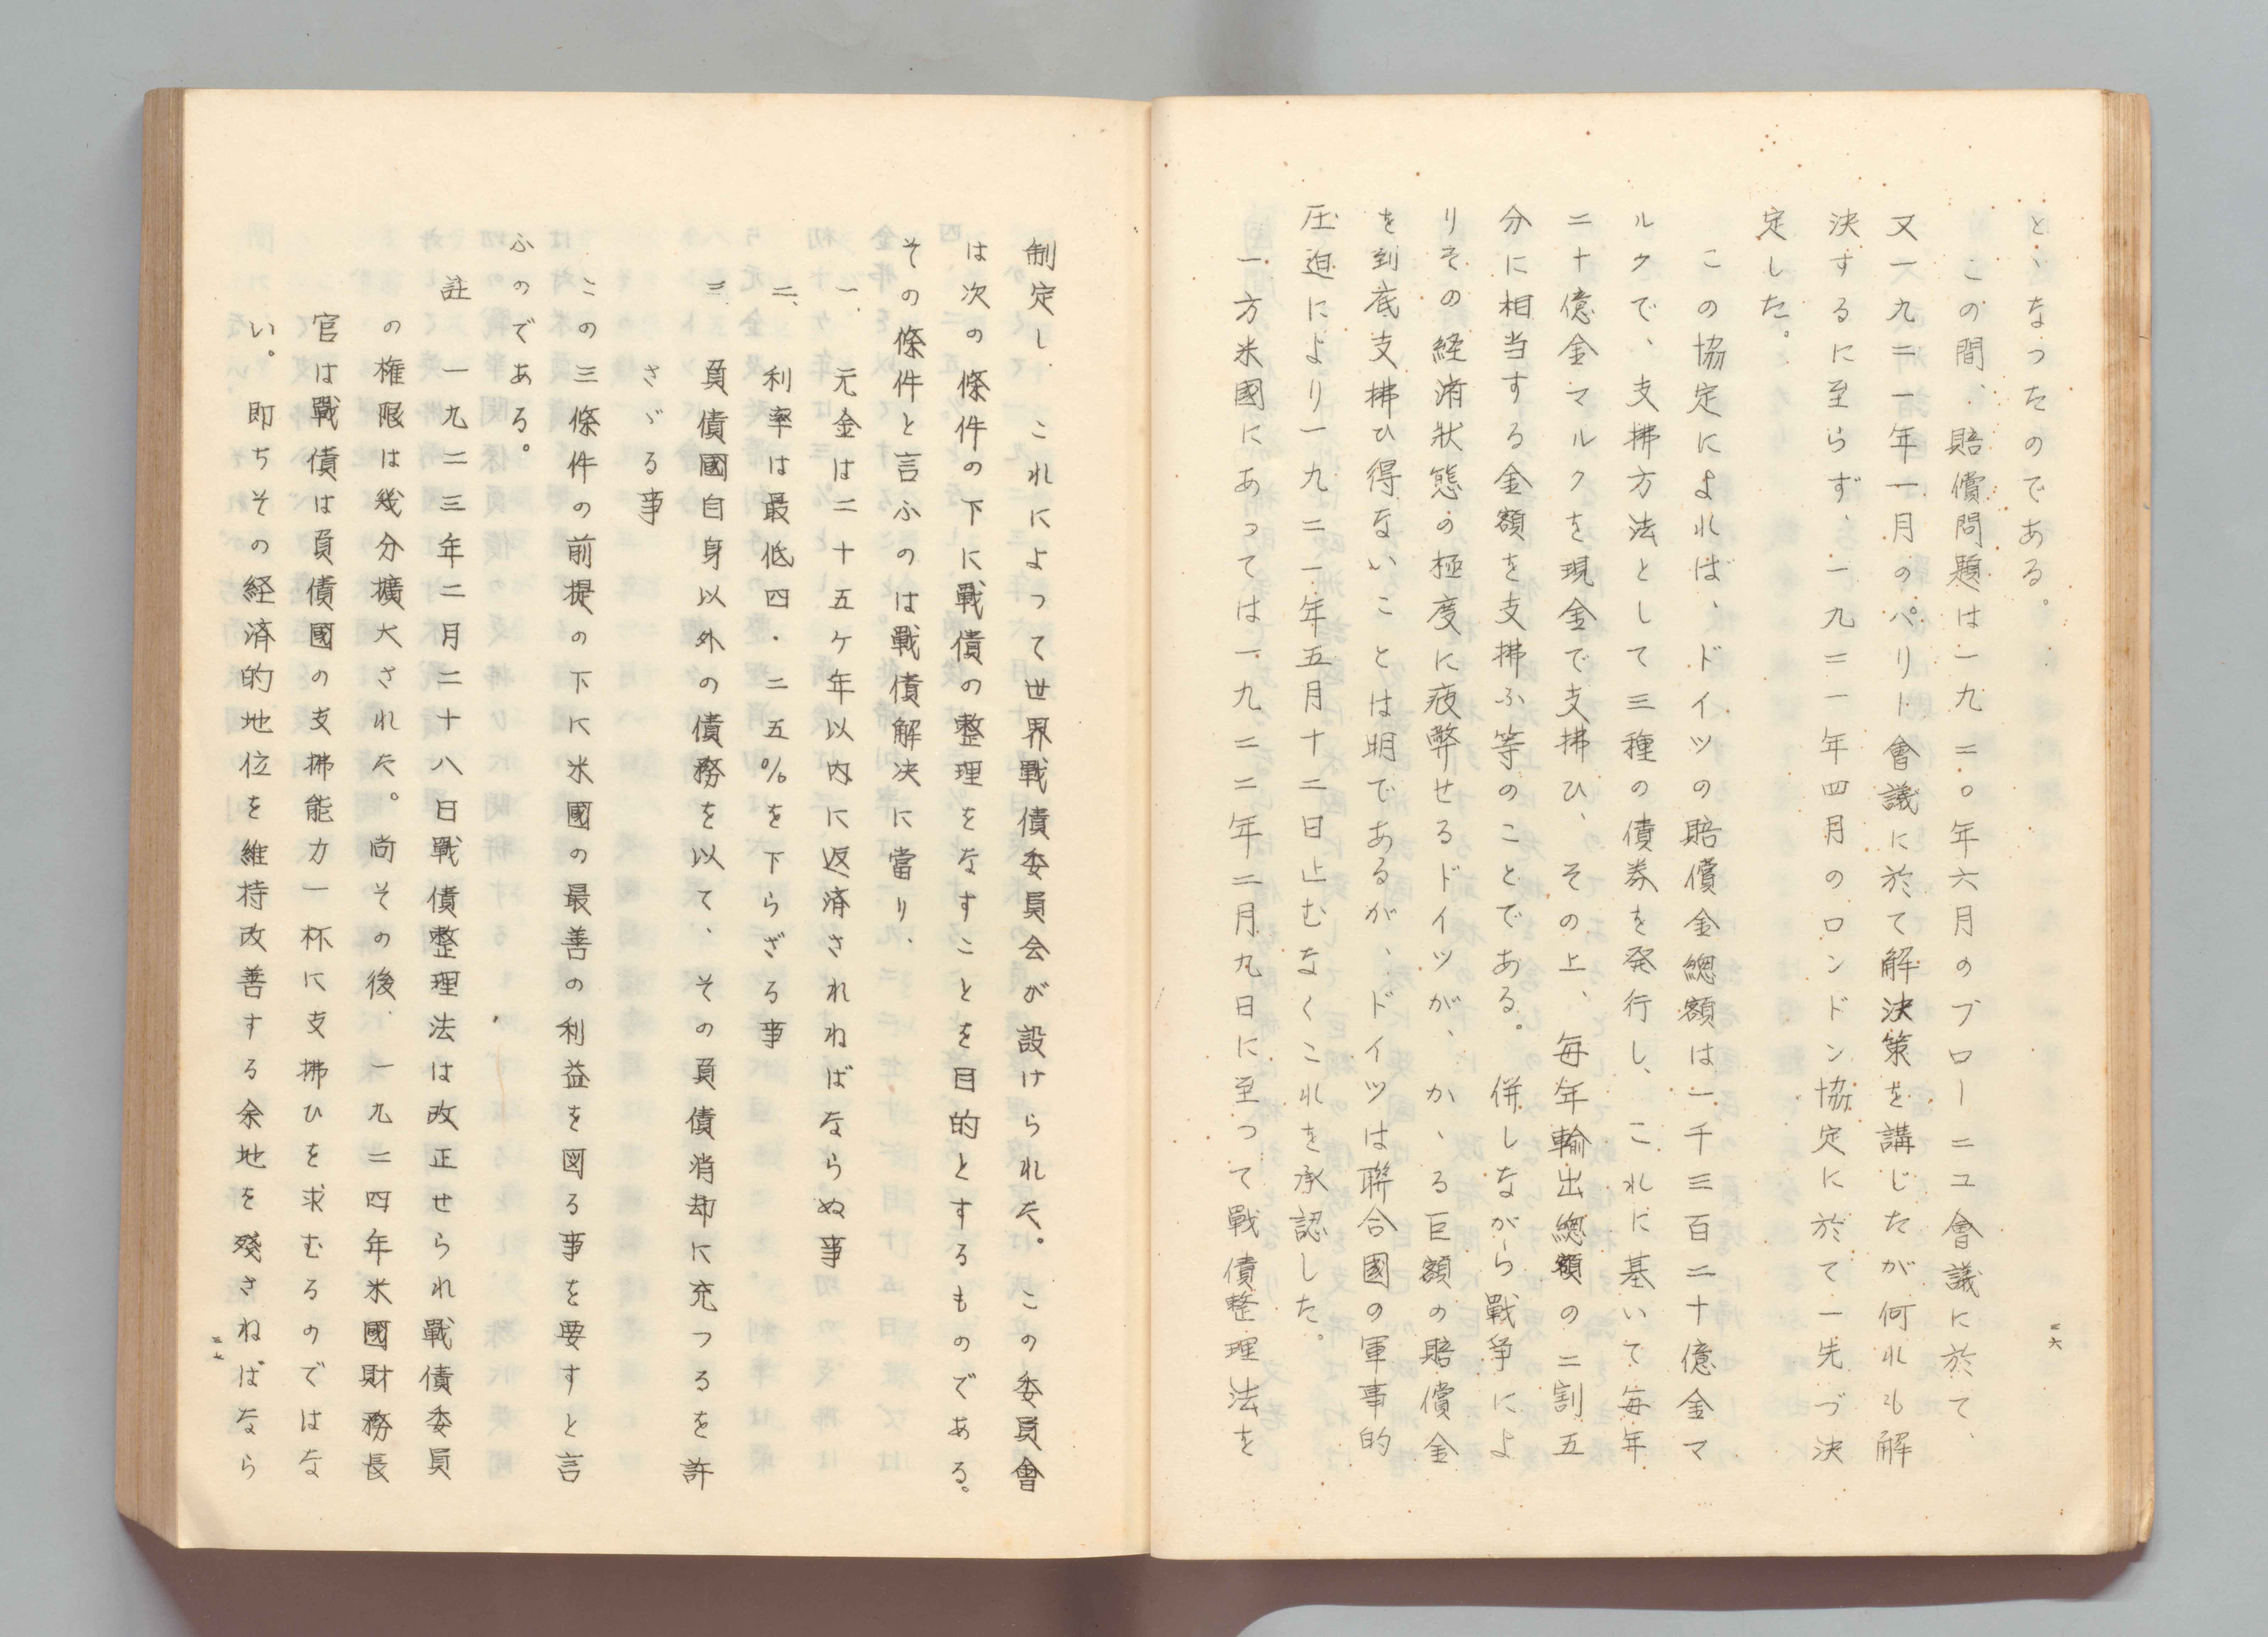 とゝなったのである。
この間、賠償問題は一九二〇年六月のブローニュ會議に於て、
又一九二一年一月のパリー會議に於て解決策を講じたが何れも解
決するに至らず、一九二一年四月のロンドン協定に於て一先づ決
定した。
この協定によれば、ドイツの賠償金總額は一千三百二十億金マ
ルクで、支拂方法として三種の債券を発行し、これに基いて毎年
二十億金マルクを現金で支拂ひ、その上、毎年輸出總額の二割五
分に相当する金額を支拂ふ等のことである。併しながら戰争によ
りその経済狀態の極度に疲弊せるドイツが、かゝる巨額の賠償金
を到底支拂ひ得ないことは明であるが、ドイツは聯合國の軍事的
圧迫により一九二一年五月十二日止むなくこれを承認した。
一方米國にあっては一九二二年二月九日に至って戰債整理法を
三六
制定し、これによって世界戰債委員会が設けられた。この委員會
は次の條件の下に戰債の整理をなすことを目的とするものである。
その條件と言ふのは戰債解決に當り、
一、元金は二十五ヶ年以内に返済されねばならぬ事
二、利率は最低四・二五%を下らざる事
三、負債國自身以外の債務を以て、その負債消却に充つるを許
さゞる事
この三條件の前提の下に米國の最善の利益を図る事を要すと言
ふのである。
註 一九二三年二月二十八日戰債整理法は改正せられ戰債委員
の権限は幾分擴大された。尚その後、一九二四年米國財務長
官は戰債は負債國の支拂能力一杯に支拂ひを求むるのではな
い。即ちその経済的地位を維持改善する余地を殘さねばなら
三七